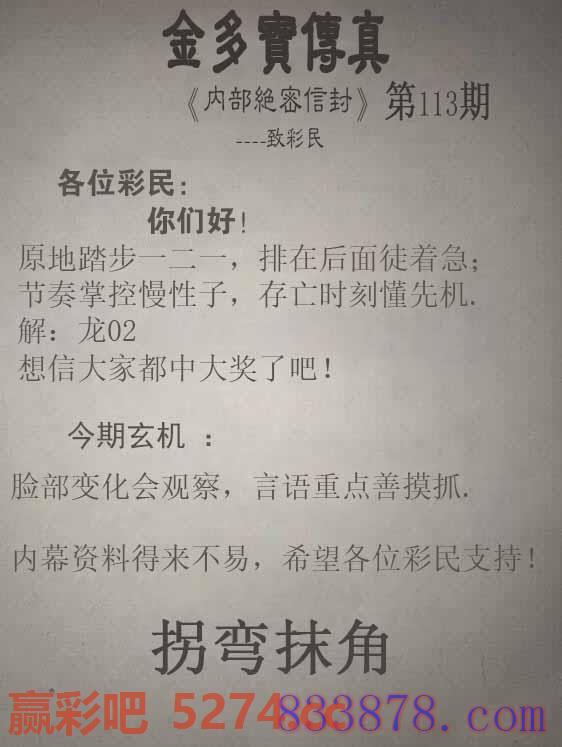 金多寶傳真
《内部絕密信封》第113期
----致彩民
各位彩民:
你们好!
原地踏步一二一，排在后面徒着急;
节奏掌控慢性子，存亡时刻懂先机.
解：龙02
想信大家都中大奖了吧!
今期玄机 :
脸部变化会观察，言语重点善摸抓.
内幕资料得来不易，希望各位彩民支持!
拐弯抹角
赢彩吧 5274.cc 833878.com